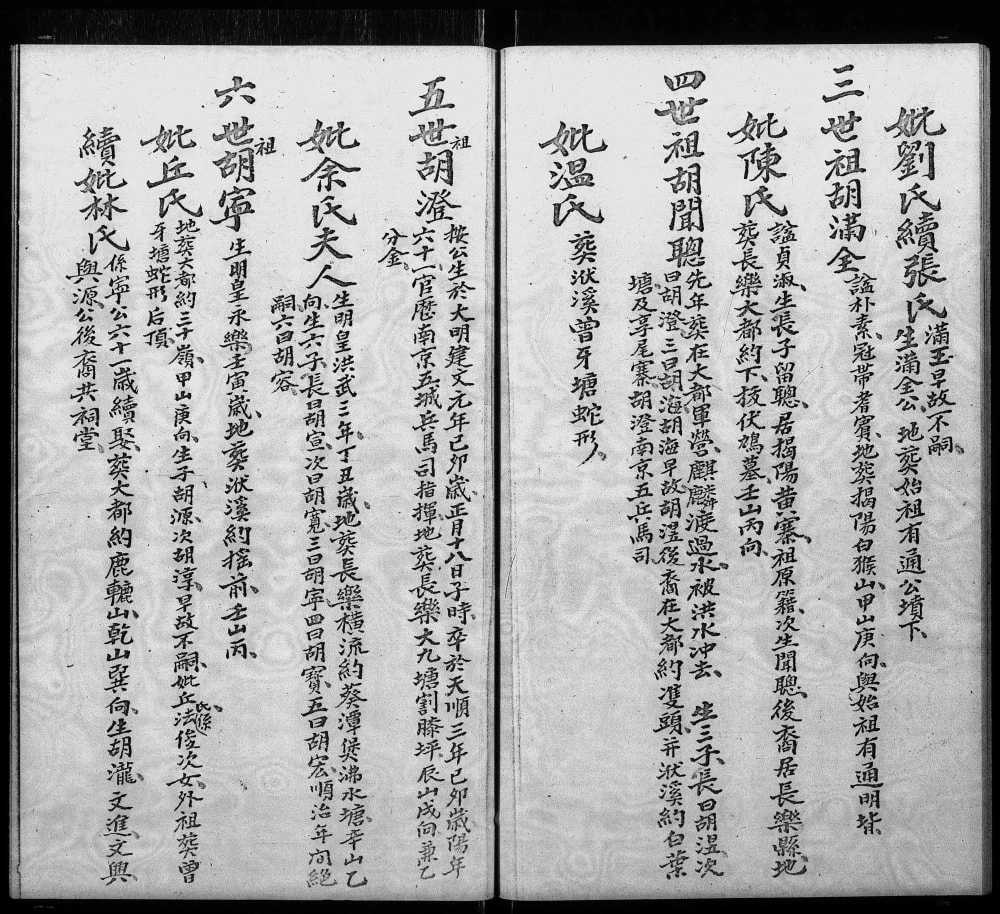 妣劉氏續張氏 滿玉早故不嗣、
生滿全公、地葬始祖有通公墳下、
三世祖胡滿全 諡朴素、冠帶耆賓、地葬揭陽白猴山、甲山庚向、與始祖有通明堂
妣陳氏 諡貞淑、生長子留聰、居揭陽黃寨祖原籍、次生聞聰、後裔居長樂縣、地
葬長樂大都約下技伏鴆墓、壬山丙向、
四世祖胡聞聰 先年葬在大都軍營、麒麟渡過水、被洪水冲去、 生三子、長曰胡温、次
曰胡澄、三曰胡海、胡海早故、胡温後裔在大都約雙頭、并洑溪約白葉
塘及享尾寨、胡澄南京五兵馬司
妣温氏 葬洑溪曾牙塘蛇形、
五世祖胡澄 按公生於大明建文元年己卯歲、正月十八日子時、卒於天順三年己卯歲、陽年
六十一、官歷南京五城兵馬司指揮、地葬長樂大九塘割膝坪、辰山戌向兼乙
分金、
妣余氏夫人 生明皇洪武三年丁丑歲、地葬長樂橫流約葵潭煲沸水塘、辛山乙
向、生六子、長曰胡宣、次曰胡寬、三曰胡寧、四曰胡寶、五曰胡宏、順治年间絕
嗣、六曰胡容、
六世祖胡寧 生明皇永樂壬寅歲、地葬洑溪約摇前、壬山丙、
妣丘氏 地葬大都約三千嶺、甲山庚向、生子胡源、次胡淳、早故不嗣、妣丘氏係法俊次女、外祖葬曾
牙塘蛇形后頂、
續妣林氏 係寧公六十一歲續娶、葬大都約鹿轆山、乾山巽向、生胡瀧、文進、文興、
與源公後裔共祠堂、